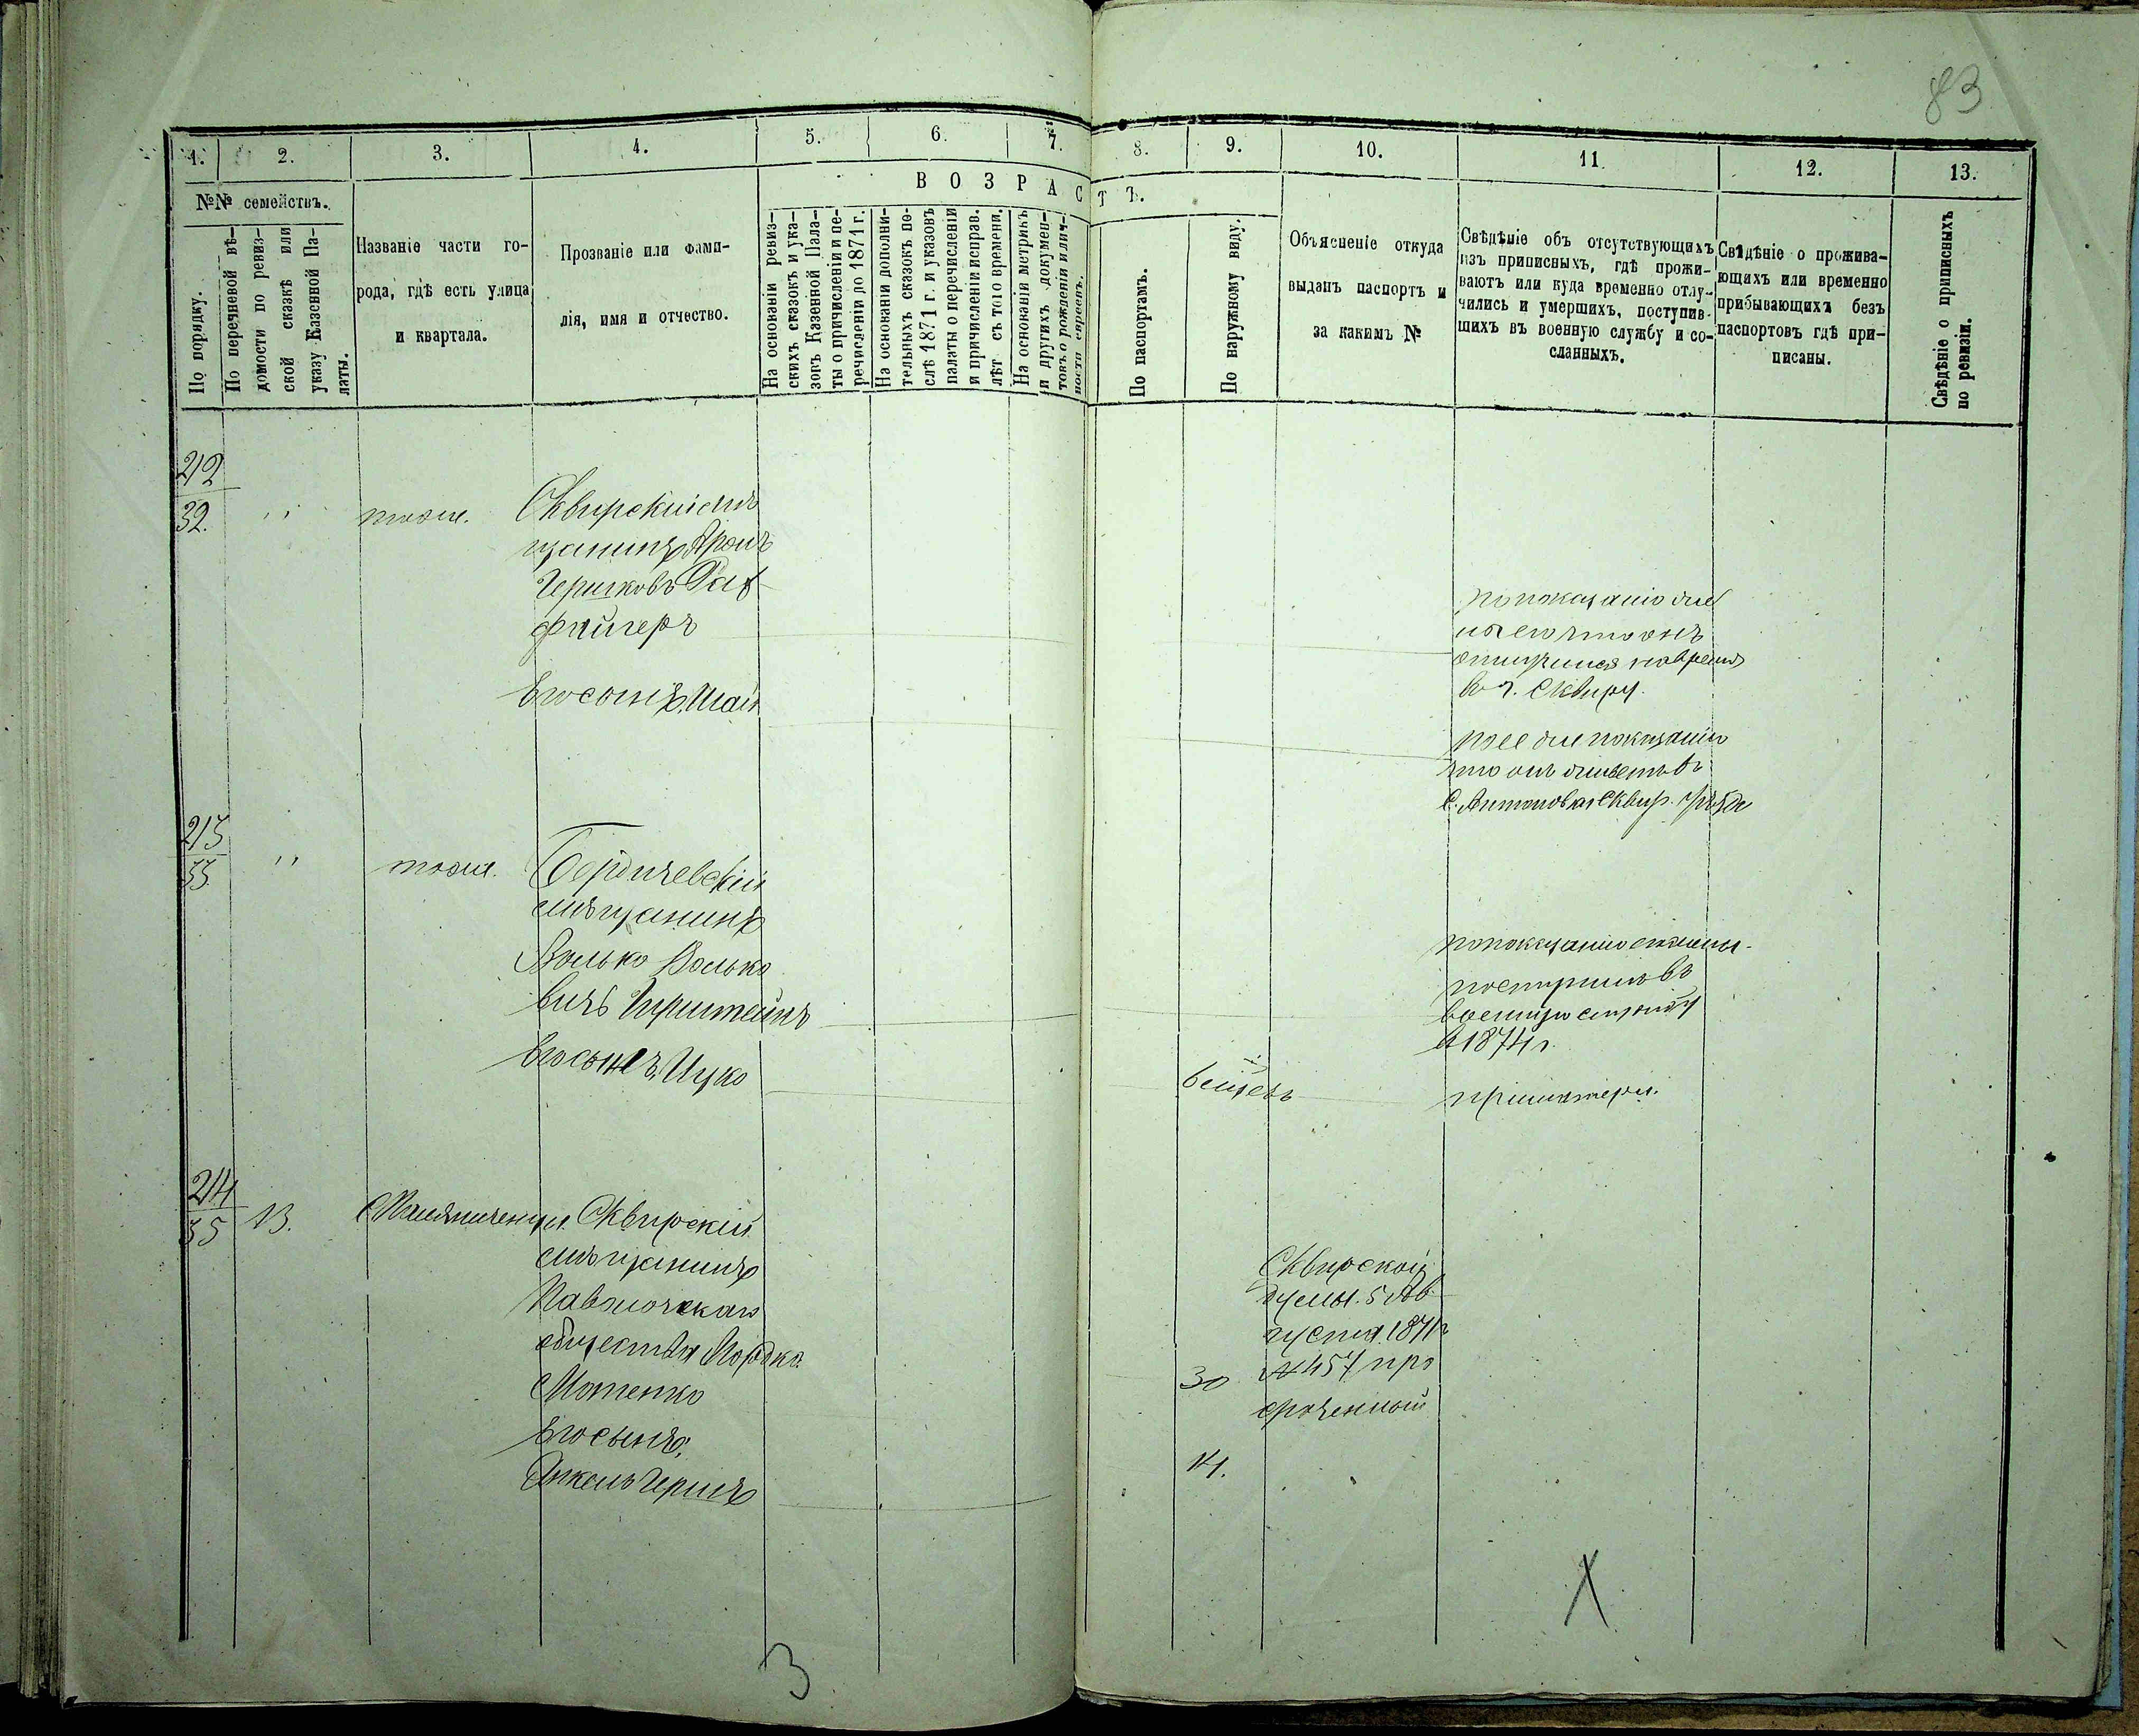 83
1. 2. 3. 4. 5. 6. 7. 8. 9. 10. 11. 12. 13.
№№ семействъ.
По порядку.
По перечневой вѣ-
домости по ревиз-
ской сказкѣ или
указу Казенной Па-
латы.
Названіе части го-
рода, гдѣ есть улица
и квартала.
Прозваніе или фами-
лія, имя и отчество.
ВОЗРАСТЪ.
На основаніи ревиз-
скихъ сказокъ и ука-
зовъ Казенной Пала-
ты о причисленіи и пе-
речисленіи до 1871 г.
На основаніи дополни-
тельныхъ сказокъ по-
слѣ 1871 г. и указовъ
палаты о перечисленіи
и причисленіи исправ.
лѣт съ того времени.
На основаніи метрикъ
и другихъ докумен-
товъ о рожденіи и лич-
ности евреевъ.
По паспортамъ.
По наружному виду.
Объясненіе откуда
выданъ паспортъ и
за какимъ №
Свѣдѣніе объ отсутствующихъ
изъ приписныхъ, гдѣ прожи-
ваютъ или куда временно отлу-
чились и умершихъ, поступив-
шихъ въ военную службу и со-
сланныхъ.
Свѣдѣніе о прожива-
ющихъ или временно
прибывающихъ безъ
паспортовъ гдѣ при-
писаны.
Свѣдѣніе о приписныхъ
по ревизіи.
212
32. " тоже. Сквирскій мѣ
щанинъ Аронъ
Гершковъ
фингеръ
по показанію же
ны его что онъ
отлучился на время
въ г. Сквиру.
Его сынъ,
по ее же показанію
что онъ живетъ въ
с. Антоновка Сквир. уѣзда
213
33. " тоже. Бердичевскій
мѣщанинъ
Волько Волько
вичъ
по показанію
поступилъ въ
военную службу
въ 1874 г.
Его сынъ, Ицко
6 мѣсяц
при матери.
214
35 13. Сквирскій
мѣщанинъ
Паволочскаго
общества Мордко
Мотенко
30
Сквирской
думы. 5 Ав
густа 1871 г
№ 457 про
сроченный
Его сынъ,
Янкель Гершъ
14.
3
X